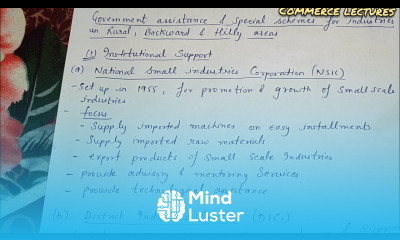 COMMERCE LECTURES
Government assistance & special schemes for industries
in Rural, Backward & Hilly areas
(1) Institutional Support
(a) National Small industries Corporation (NSIC)
- Set up in 1955, for promotion & growth of small scale
industries
- focus
- Supply imported machines on easy installments
- Supply imported raw materials
- export products of Small Scale Industries
- provide advisory & mentoring Services
- provide technological assistance
Mind
Luster
(b) District